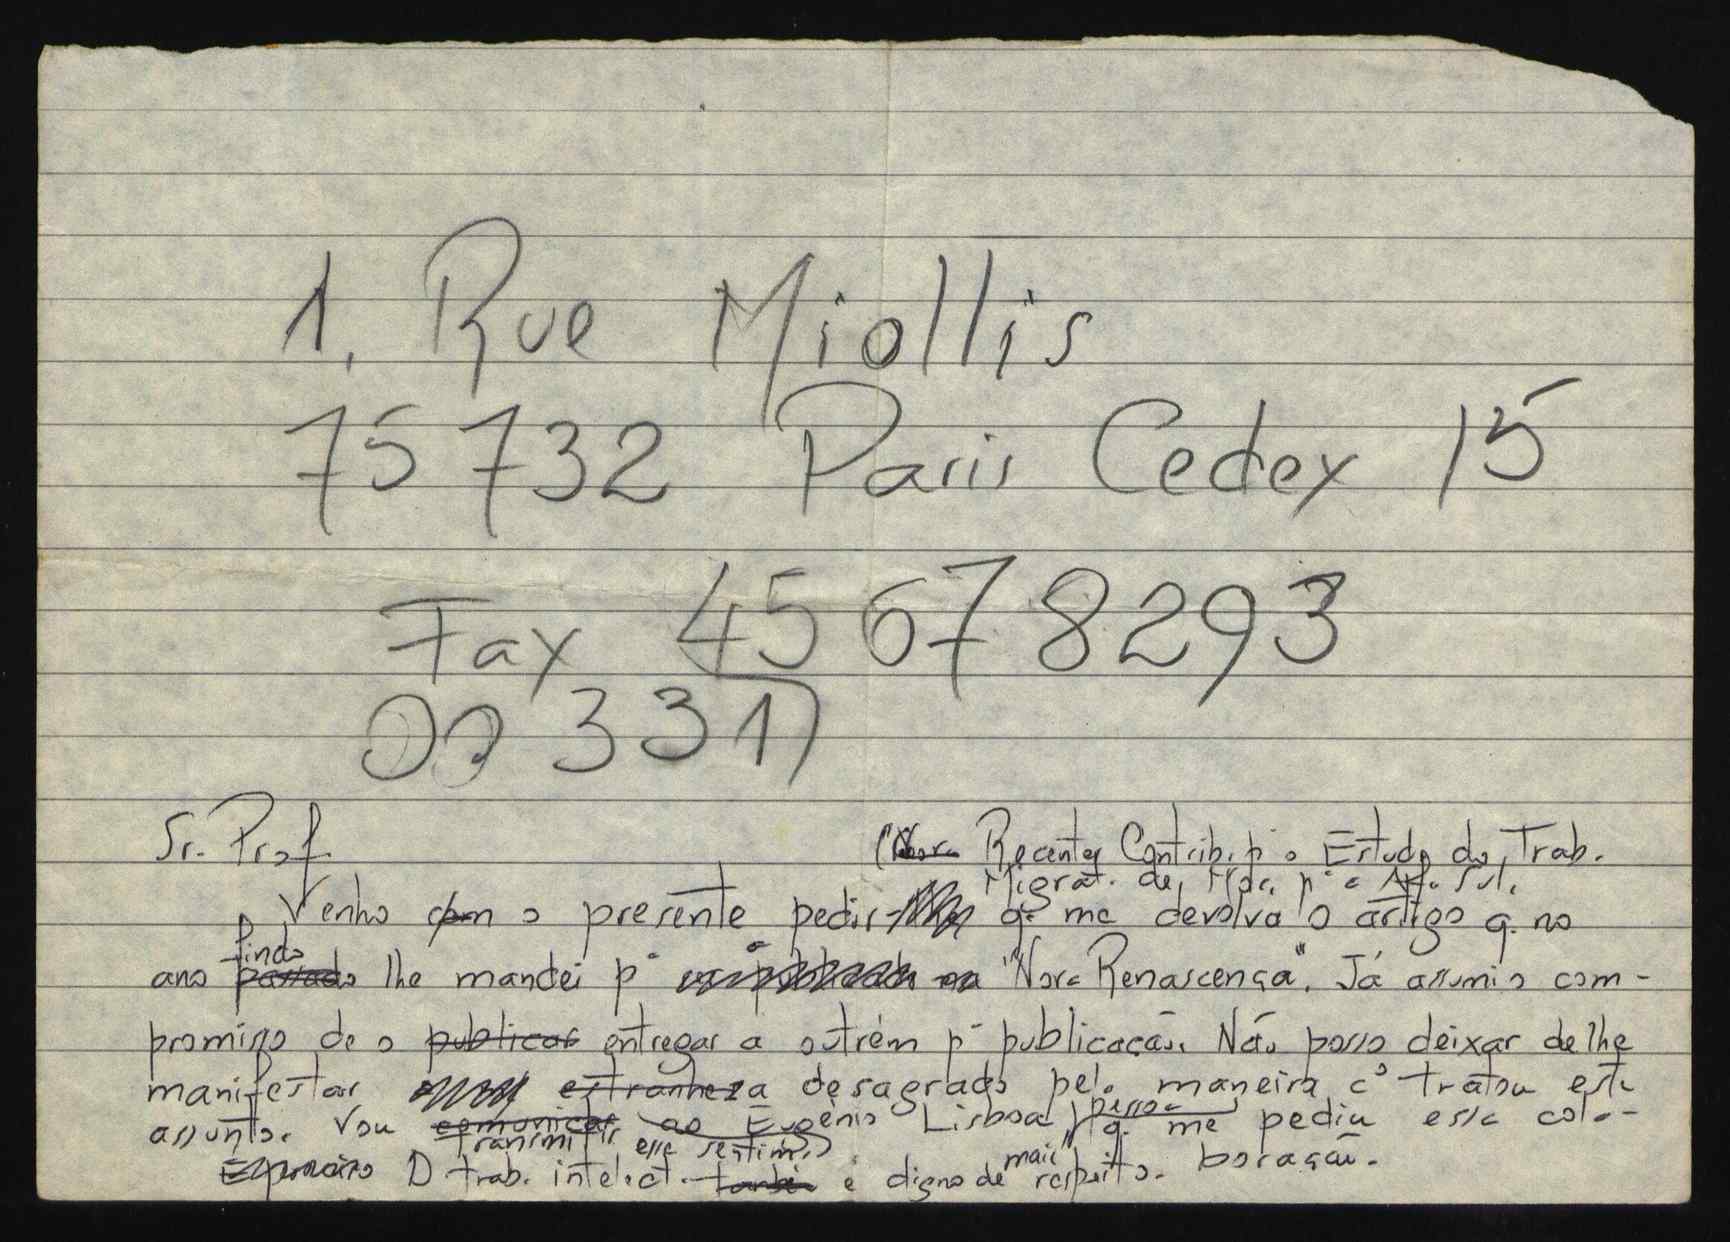 1, Rue Miollis
75 732 Paris Cedex 15
Fax 45 67 8293
00 331)
Sr. Prof.
(Nova Recentes Contrib. pª o Estudo do Trab.
Migrat. de Moç. pª a Áfr. Sul.
Venho com o presente pedir q. me devolva o artigo q. no
findo
ano passado lhe mandei pª a "Nova Renascença". Já assumi o com-
promisso de o publicar entregar a outrém pª publicação. Não posso deixar de lhe
manifestar estranheza desagrado pela maneira cº tratou este
assunto. Vou comunicar ao Eugénio Lisboa, pessoa q. me pediu essa cola-
transmitir esse sentim.
boração.
O trab. intelect. também é digno de mais respeito.